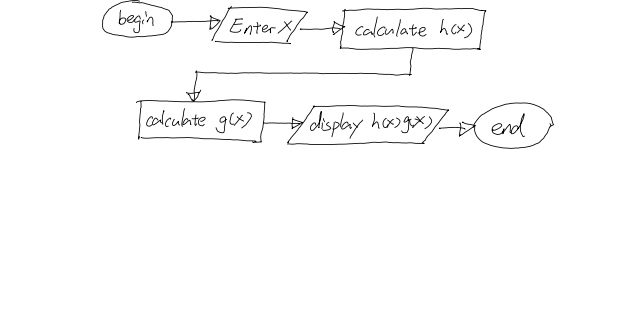 begin Enter X calculate h(x)
calculate g(x) display h(x)g(x) end